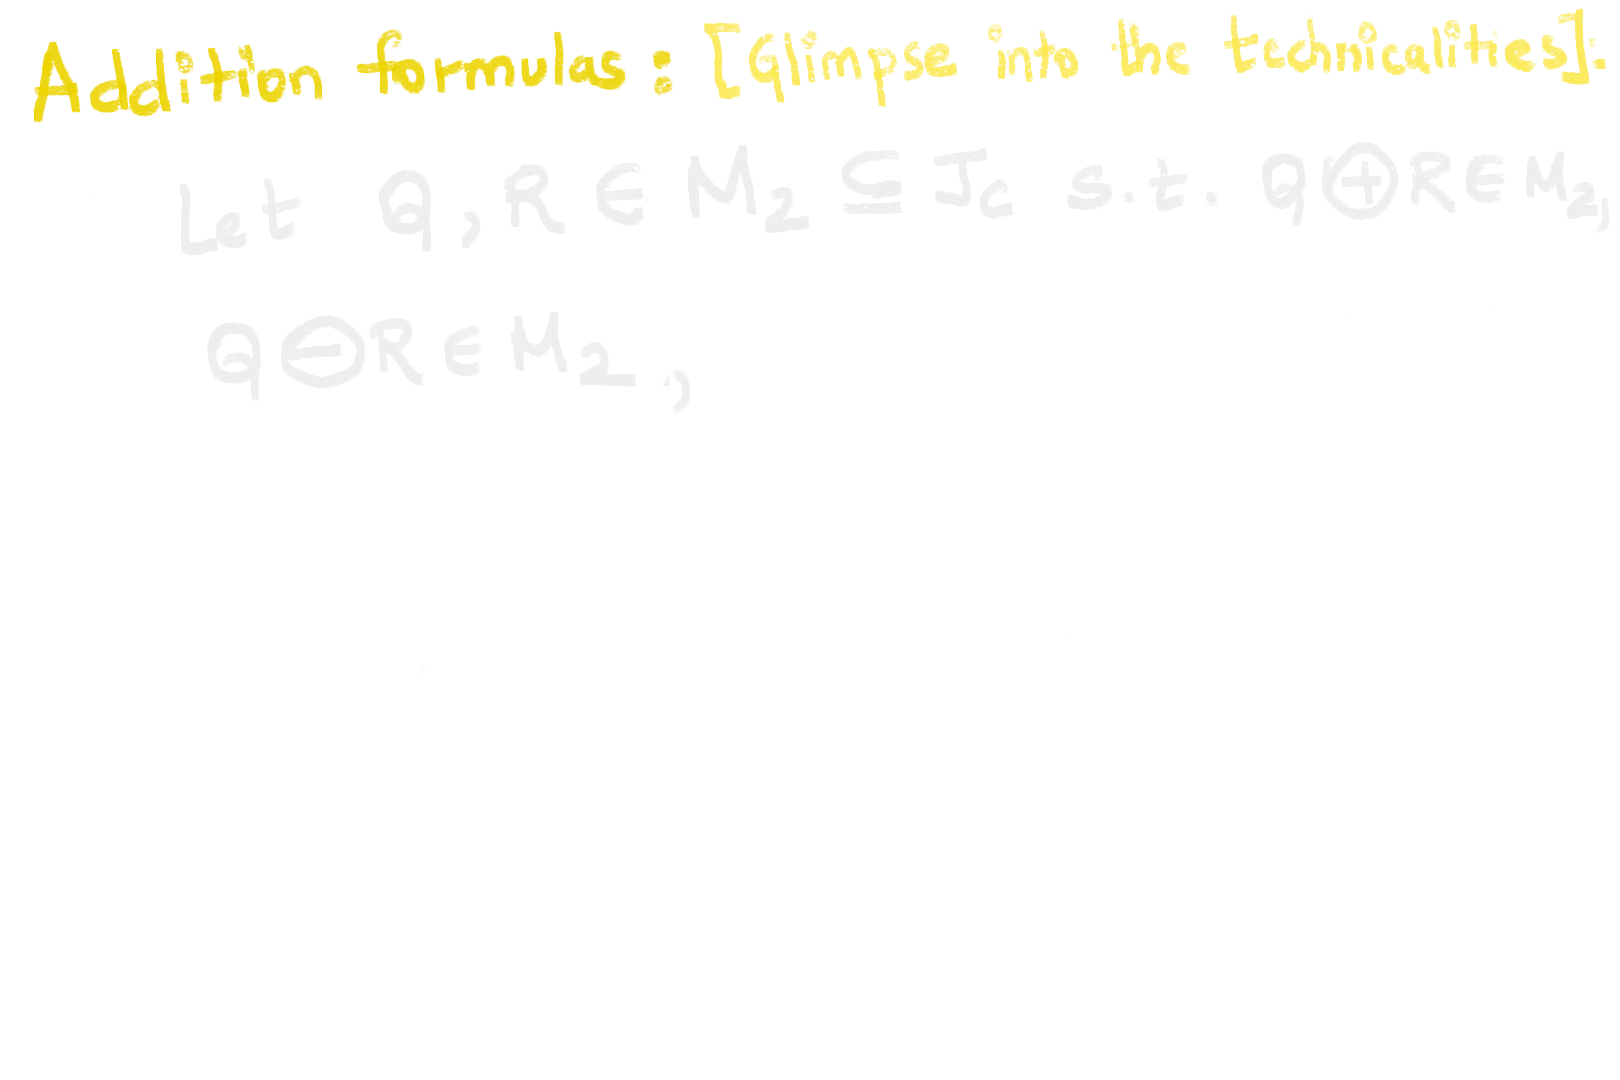 Addition formulas : [Glimpse into the technicalities].
Let Q, R ∈ M₂ ⊆ J_C s.t. Q⊕R ∈ M₂,
Q⊖R ∈ M₂ ,